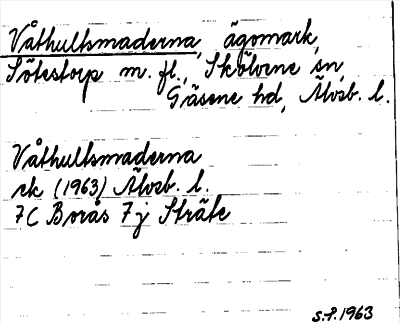 Våthultsmaderna, ägomark,
Sötestorp m. fl., Skölvene sn,
Gäsene hd, Älvsb. l.
Våthultsmaderna
ek (1963) Älvsb. l.
7C Borås 7j Sträte
S.P. 1963